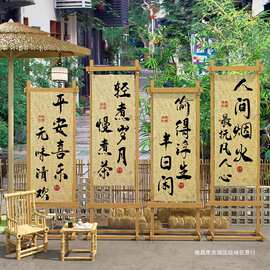 平安喜乐
元味清欢
轻煮岁月
慢煮茶
偷得浮生
半日闲
人间烟火
最抚凡人心